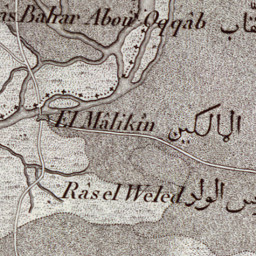 Bahar Abou Oqqâb
El Mâlikîn المالكين
Râs el Weled الولد